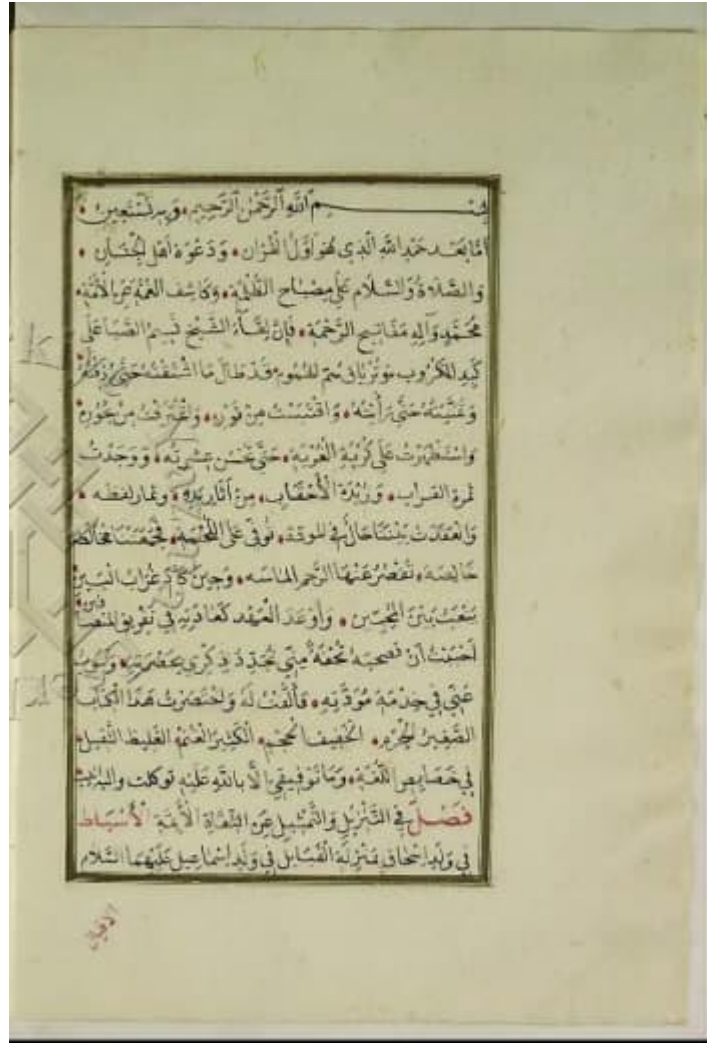 بسم الله الرحمن الرحيم وبه نستعين
اما بعد حمد الله الذي هو اول القران ودعوة اهل الجنان
والصلاة والسلام على مصباح الظلمة وكاشف الغمة عن الامة
محمد وآله مفاتيح الرحمة فان لقاء الشيخ نسيم الصبا على
كبد المكروب ترياق سم الهموم قد طال ما اشتقته حتى
وتمنيته حتى رأيته واقتبست من نوره واغترفت من بحوره
واستظهرت على كربة الغربة بحسن عشرته ووجدت
ثمرة الغراب وزبدة الاحقاب من آثار يده وثمار لفظه
وانعقدت بيننا حال في المودة توفي على اللحمة فجمعتنا
خالصة تقصر عنها الرحم الماسه وحين كاد غراب البين
ينعب بين المحبين واوعد العهد كعادته في تفريق المتصافين
احببت ان تصحبه تحفة مني تجدد ذكري بحضرته وتنوب
عني في خدمة مودته فألفت له واختصرت هذا الكتاب
الصغير الجرم الخفيف الحجم الكثير الغنم الغليظ الثقيل
في خصايص اللغة وما توفيقي الا بالله عليه توكلت واليه انيب
فصل في التنزيل والتمثيل عن الثقاة الأيمة الأسباط
في ولد اسحاق بمنزلة القبايل في ولد اسماعيل عليهما السلام